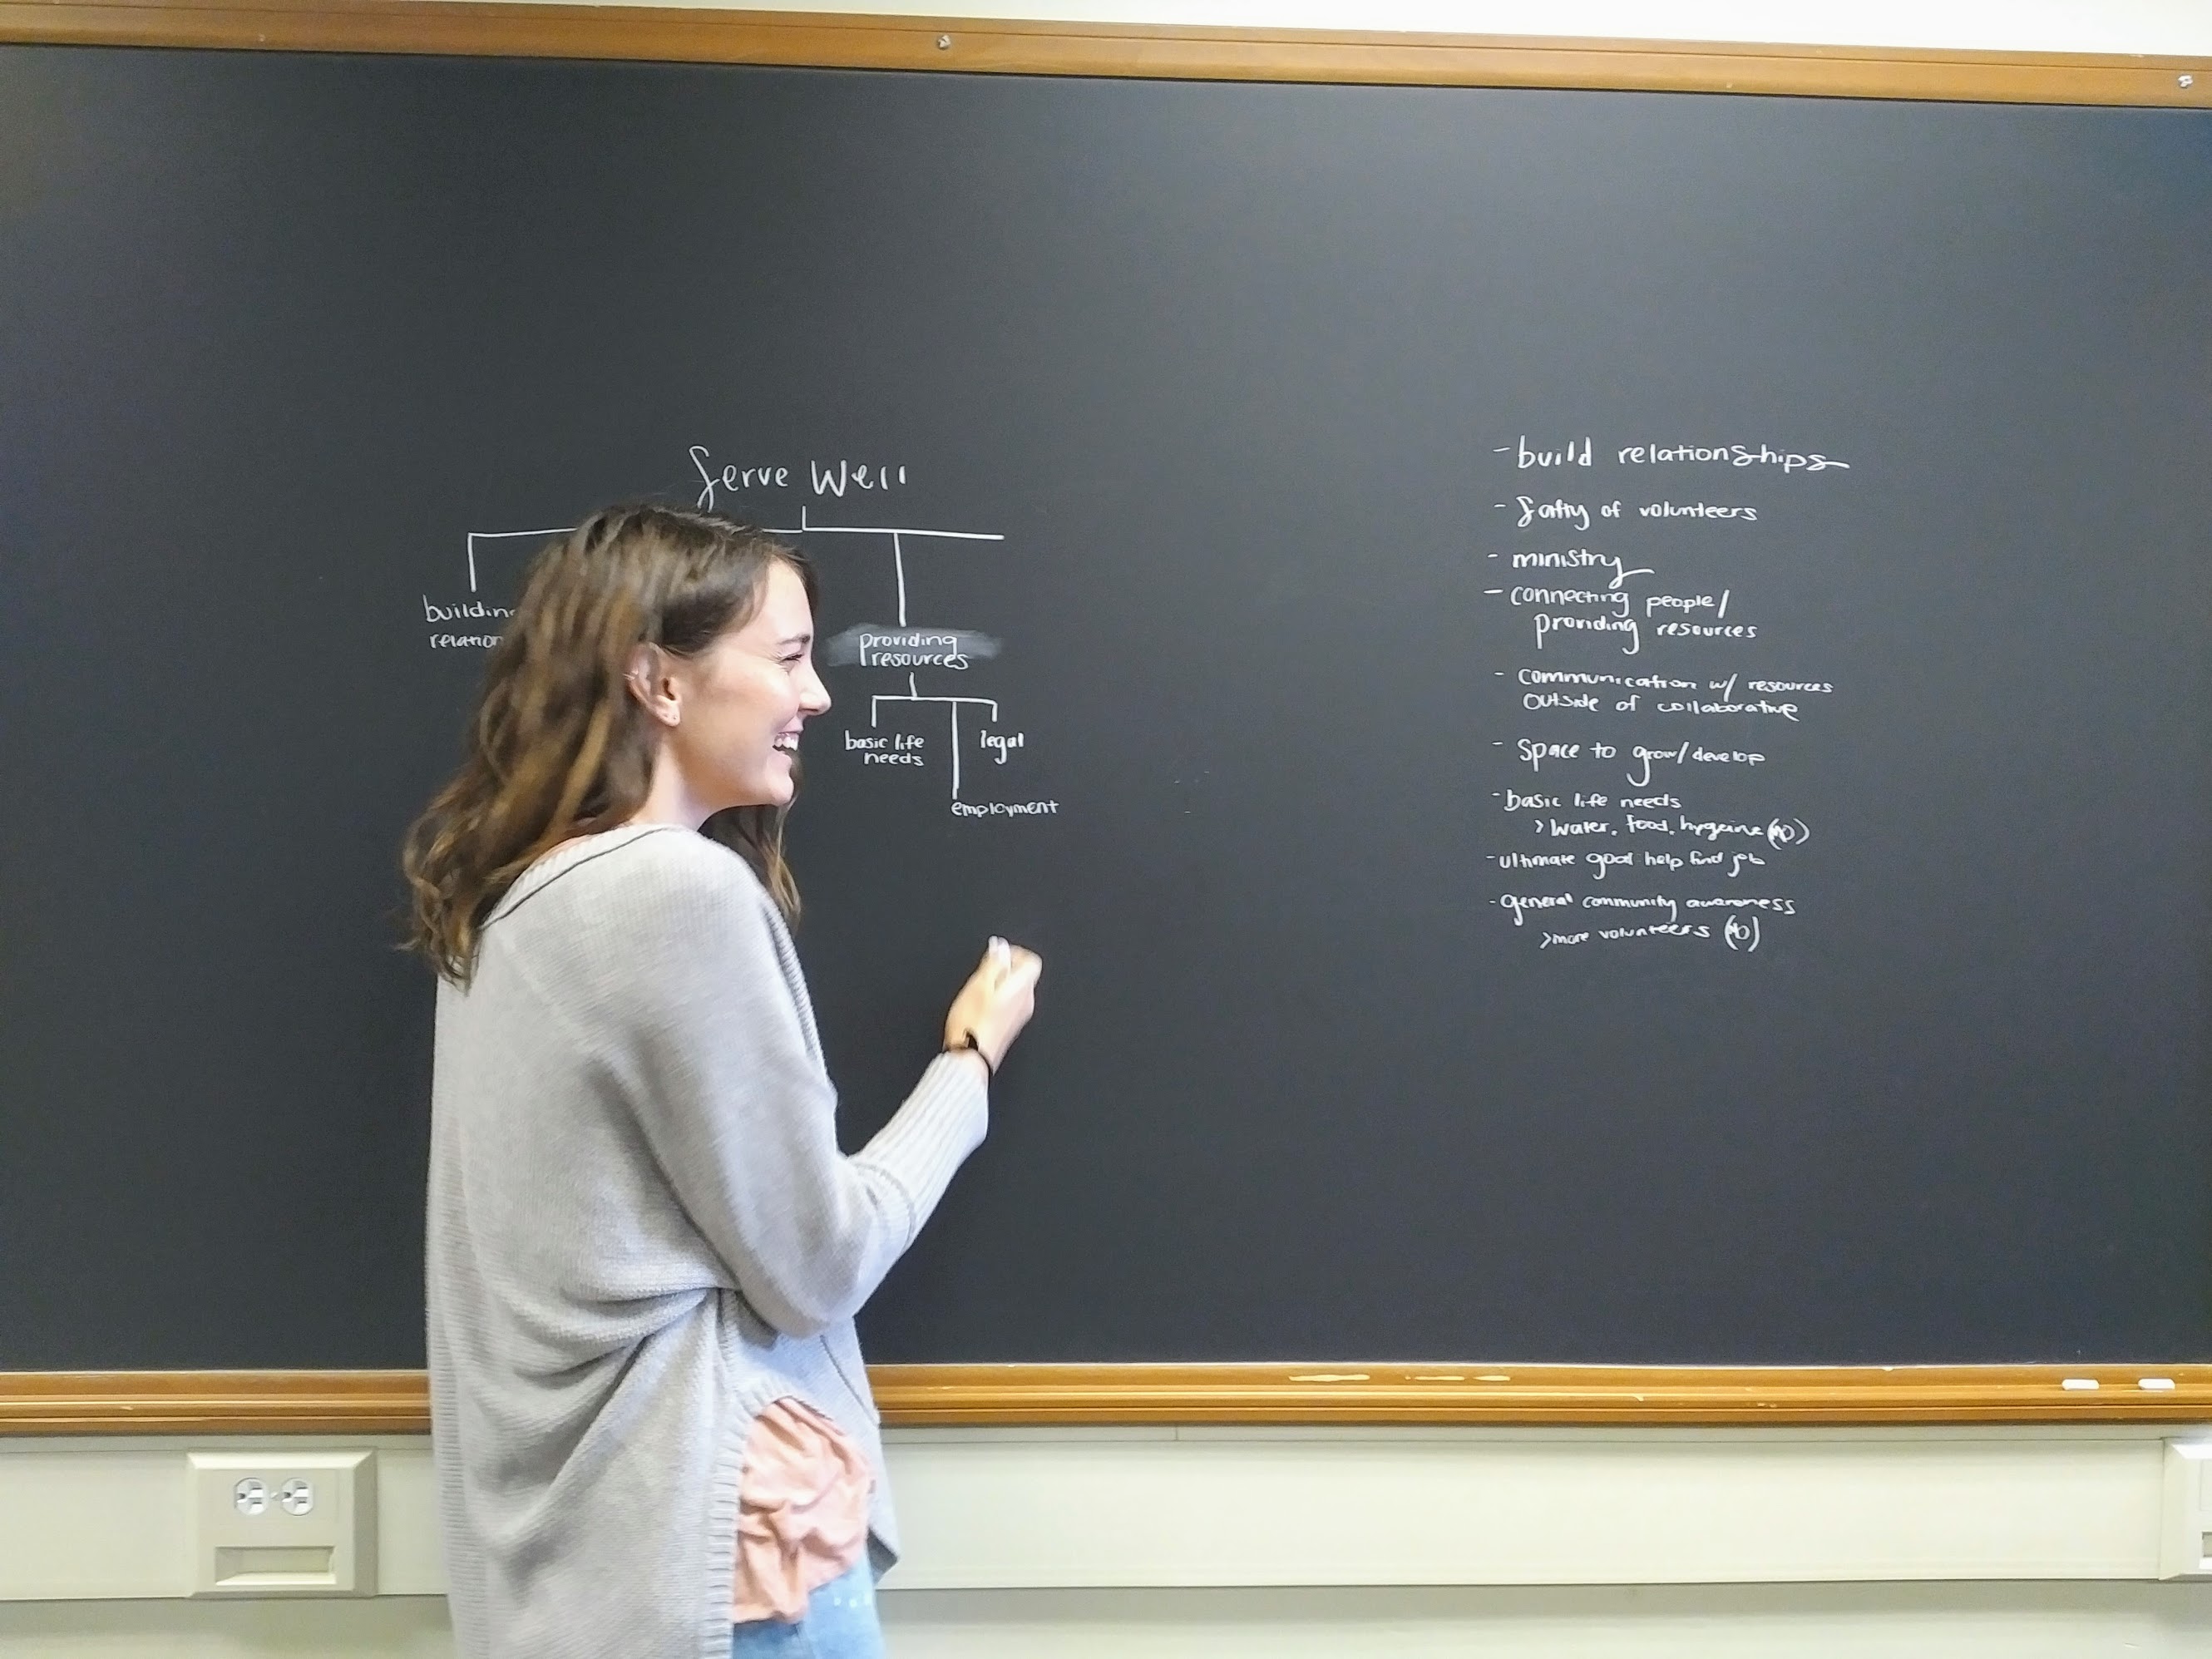 Serve Well
building
relation
providing
resources
basic life
needs
legal
employment
- build relationships
- Safty of volunteers
- ministry
- connecting people/
providing resources
- communication w/ resources
outside of collaborative
- Space to grow/develop
- basic life needs
> Water, food, hygeine
- ultimate goal help find job
- general community awareness
> more volunteers